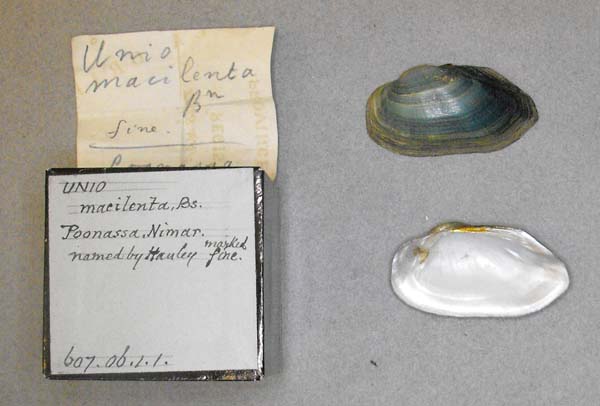 Unio
macilenta
Bn
fine.
Poonassa
UNIO
macilenta, Bs.
Poonassa, Nimar.
named by Hauley marked fine.
607.06.1.1.